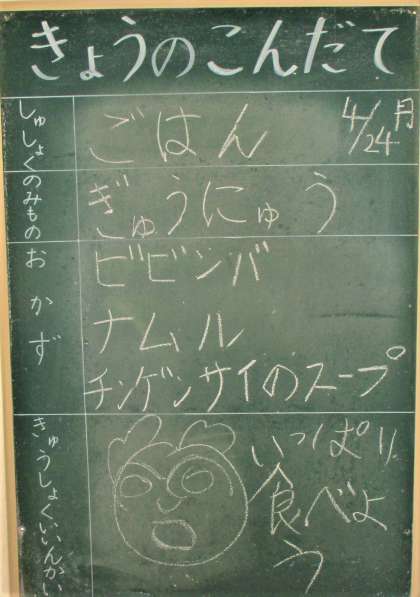 きょうのこんだて
しゅしょく
ごはん
4/24 月
のみもの
ぎゅうにゅう
おかず
ビビンバ
ナムル
チンゲンサイのスープ
きゅうしょくいいんかい
いっぱい
食べよ
う